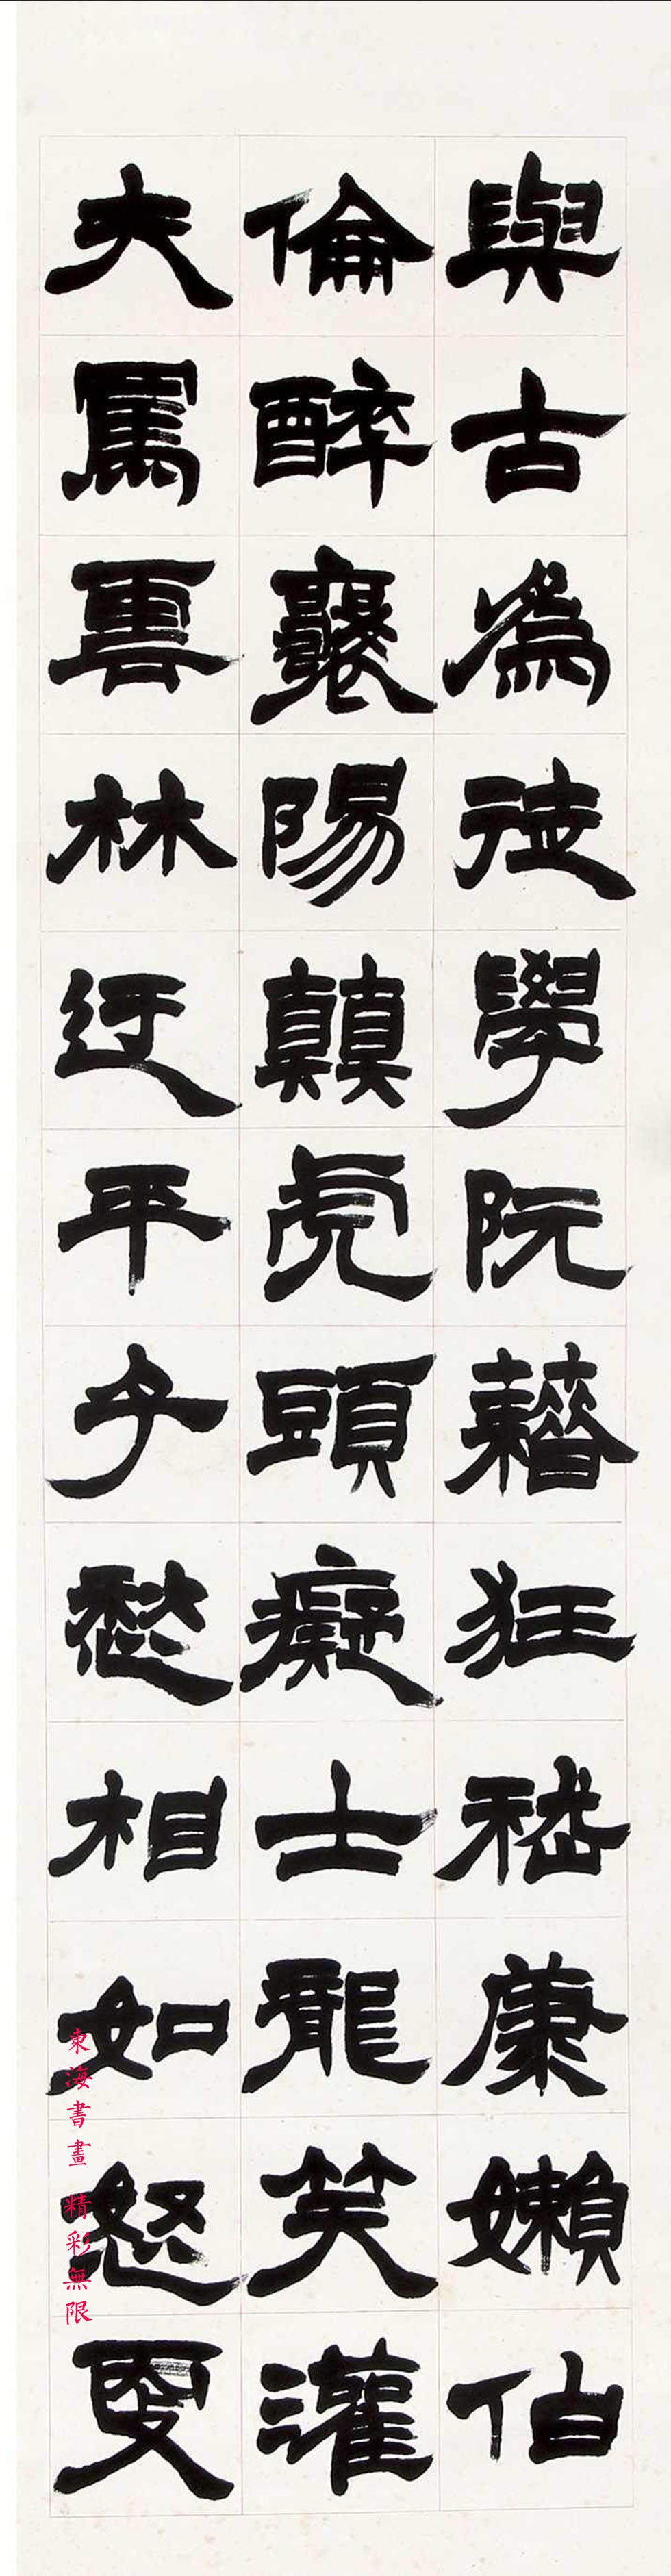 與古爲徒學阮藉狂嵇康嬾伯
倫醉襄陽顛虎頭癡士龍笑灌
夫罵雲林迂平子愁相如怒更
東海書畫 精彩無限